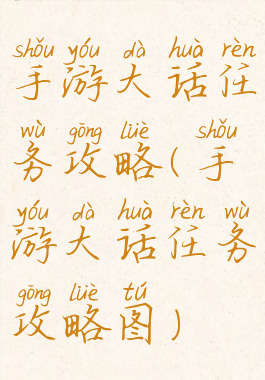 shǒu yóu dà huà rèn
手游大话任
wù gōng lüè shǒu
务攻略(手
yóu dà huà rèn wù
游大话任务
gōng lüè tú
攻略图)